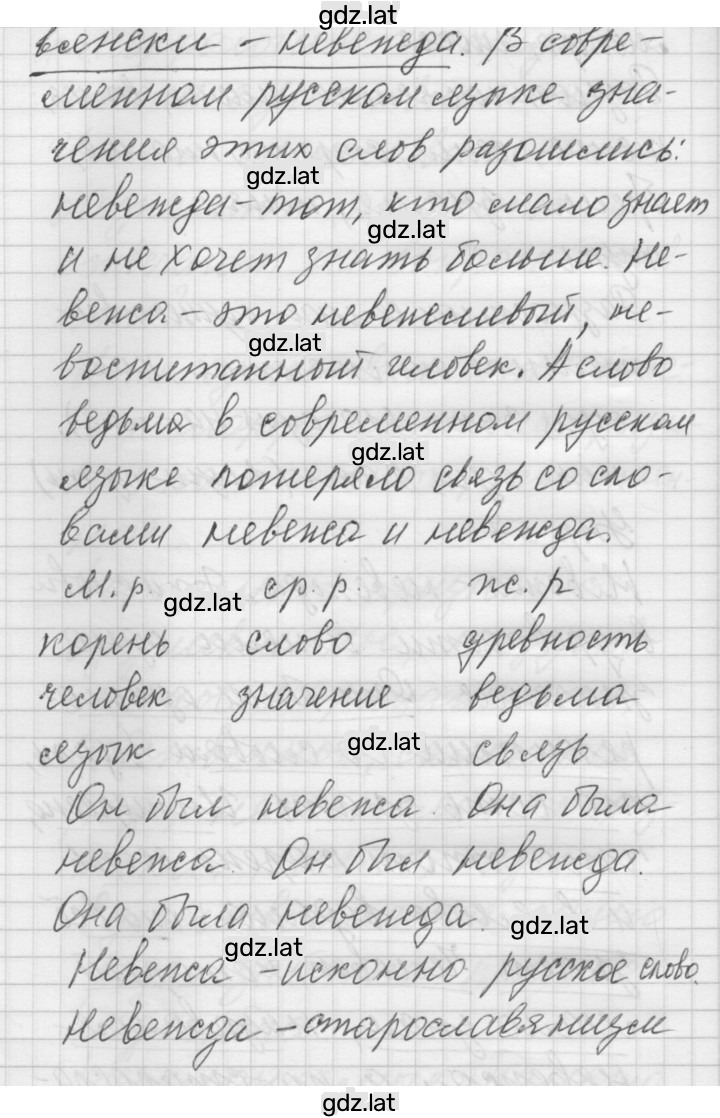 gdz.lat
вянски – невежда. В совре-
менном русском языке зна-
чения этих слов разошлись:
gdz.lat
невежда – тот, кто мало знает
gdz.lat
и не хочет знать больше. Не-
вежа – это невежливый, не-
gdz.lat
воспитанный человек. А слово
ведьма в современном русском
gdz.lat
языке потеряло связь со сло-
вами невежа и невежда.
М. р. ср. р. ж. р.
gdz.lat
корень слово древность
человек значение ведьма
язык связь
gdz.lat
Он был невежа. Она была
невежа. Он был невежда.
Она была невежда.
gdz.lat
gdz.lat
Невежа – исконно русское слово.
Невежда – старославянизм
gdz.lat